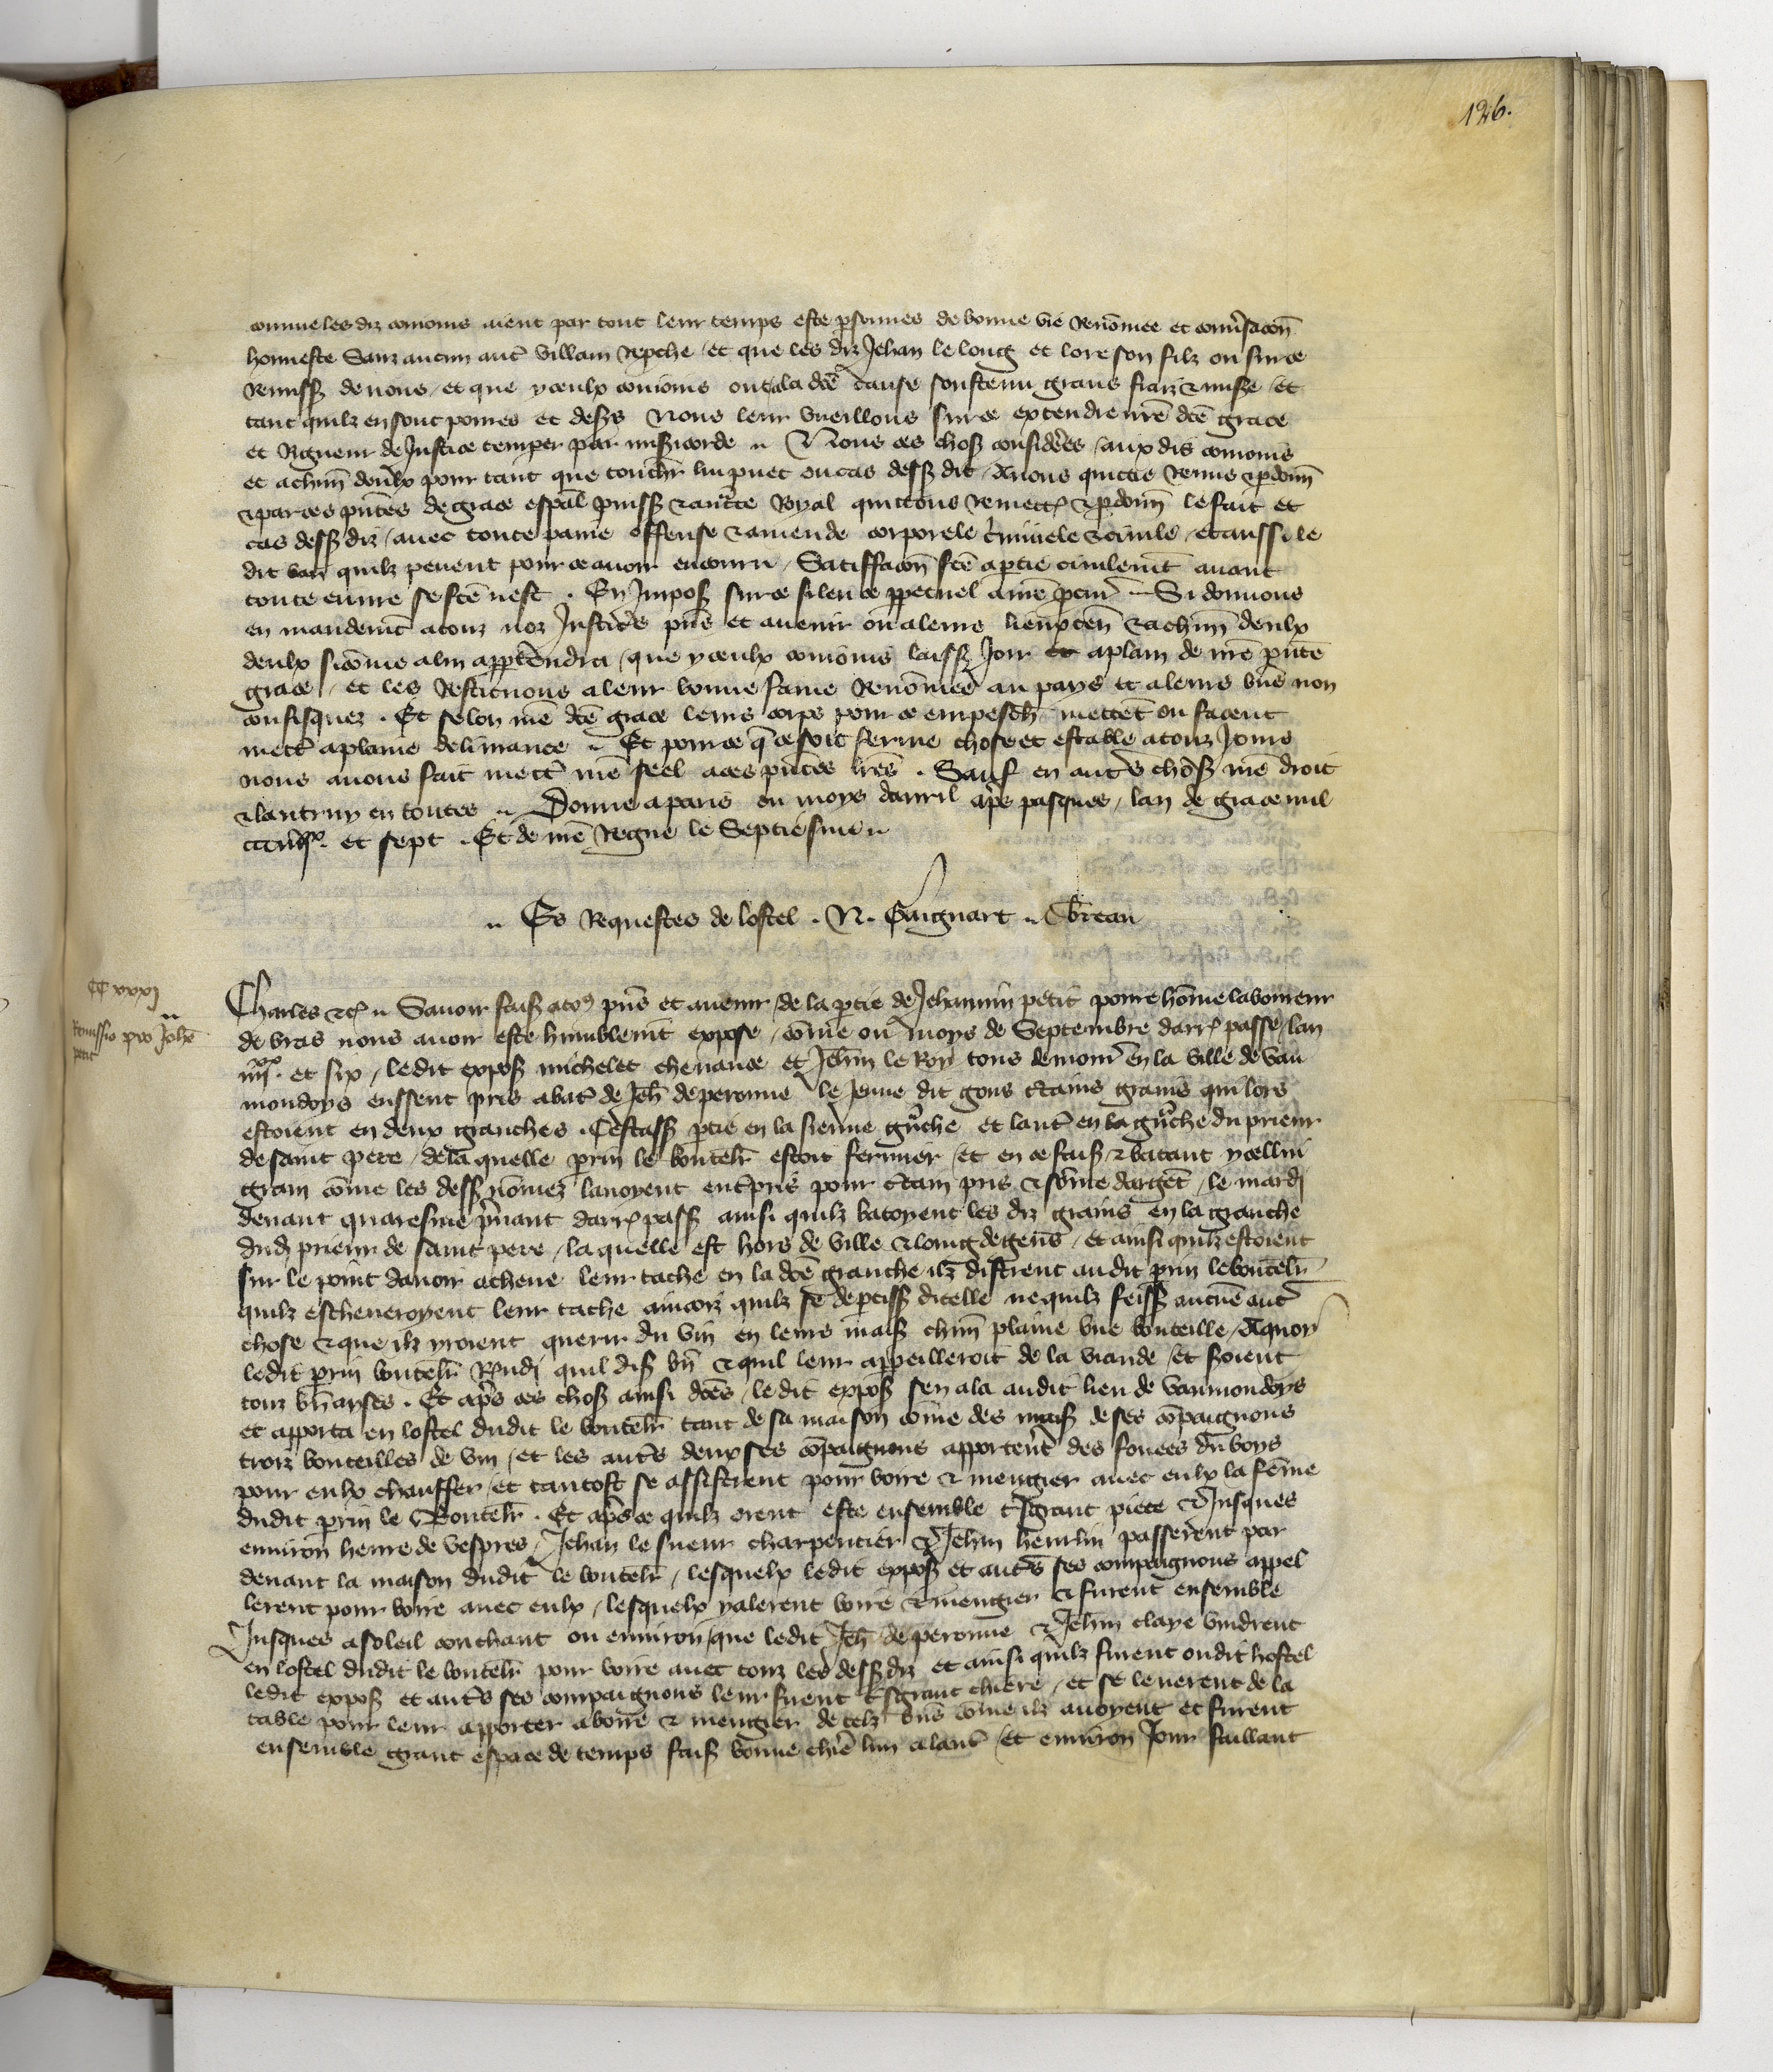 126.
comme les diz commis aient par tout leur temps este psonnes de bonne vie Renōmee et conv̄sacōn
honneste Sanz aucun autˀ villain Repche / et que les diz Jehan le long et lore son filz ont sur ce
Remissꝫ de nous / et que yceulx ont ala dcē cause soustenu grans fraiz & misse / et
tant quilz en sont poures et desers Nous leur vueillons sur ce extendre nr̄e dcē grace
et Rigueur de Justice temper par miscicorde ·· Nous ces chosꝫ considerees / aux dis
et achūn deulx pour tant que touchˀ lui puet ou cas dessꝫ dit / Avons quictie Remis & pdonn̄
& par ces pn̄tes de grace esp̄al puissꝫ & auctˀte Royal quictons Remectꝫ & pdonn̄ le fait et
cas dessꝫ diz / avec toute paine offense & amende corporele cˀiminele & civile / et aussi le
dit ban quilz pevent pour ce avoir encouru / Satiffacōn fcē a partie civilemt̄ avant
toute euvre se fcē nest . En Imposꝫ sur ce silence ppetuel a nr̄e pcurˀ ·· Si donnons
en mandemt̄ a touz noz Justicˀs pn̄s et avenir ou a leurs lieuxten̄ & achūn deulx
deulx sicōme a lui appartendra / que yceulx laissꝫ Joir et a plain de nr̄e pn̄te
grace / et les Restituons a leur bonne fame Renōmee au pays et a leurs biēs non
confisquez . Et selon nr̄e dcē grace leurs corps pour ce empeschꝫ mettēt ou facent
mectˀ a plaine delivrance ·· Et pour ce q̄ ce soit ferme chose et estable a touz Jours
nous avons fait mectˀ nr̄e seel a ces pn̄tes lr̄es . Sauf en autˀs chosꝫ nr̄e droit
& lautruy en toutes ·· Donne a paris ou moys davril apˀs pasques / lan de grace mil
ccc iiijˣˣ. et sept . Et de nr̄e Regne le Septiesme ··
·· Es Requestes de lostel . N. Gaignart ·· Breau
CC xxxj
Remissio pro Johē
petit
Charles &cꝫ ·· Savoir faisꝫ a toꝰ pn̄s et avenir / de la ptie de Jehannin petit poure hōme laboureur
de bras nous avoir este humblemt̄ expose / cōme ou moys de Septembre darrꝫ passe / lan
iiijˣˣ. et six / ledit exposꝫ michelet chenance et Jehn̄ le Roy tous demourˀ en la ville de Vau
mondoys eussent pris a batˀ de Jeh̄ de peronne le Jeune dit gous cˀtains grains qui lors
estoient en deux granches . Cestassꝫ ptie en la sienne grˀche et lautˀ en la grˀche du prieur
de saint pere / de la quelle perin le boutellˀ estoit fermier / et en ce faisꝫ & batant ycellui
grain cōme les dessꝫ nōmez lavoyent entˀpris pour cˀtain pris & sōme dargēt / le mardj
devant quaresme pˀnant darrꝫ passꝫ ainsi quilz batoyent les diz grains en la granche
dudꝫ prieur de saint pere / la quelle est hors de ville & loing de gens / et ainsi quilz estoient
sur le point davoir acheve leur tache en la dcē granche ilz distrent audit perin le boutellˀ
quilz escheveroyent leur tache aincoiz quilz se deptissꝫ dicelle ne quilz feissꝫ aucūe autˀ
chose & que ilz yroient querir du vin en leurs maisꝫ chūn plaine vne bouteille / A quoy
ledit perin boutellˀ Rn̄dj quil disꝫ bn̄ & quil leur appeilleroit de la viande / et seroient
touz bn̄ ayses . Et apˀs ces chosꝫ ainsi dcēs / ledit exposꝫ sen ala audit lieu de Vaumondoys
et apporta en lostel dudit le boutellˀ tant de sa maison cōme des maisꝫ de ses cōpaignons
troiz bouteilles de vin / et les autˀs deux ses cōpaignons apporterˀt des fouees du boys
pour eulx chauffer / et tantost se assistrent pour boire & mengier avec eulx la fēme
dudit perin le Boutellˀ . Et apˀs ce quilz orent este ensemble tˀsgrant piece & Jusques
environ heure de vespres / Jehan le sueur charpentier & Jehn̄ hemelin passerent par
devant la maison dudit le boutellˀ / lesquelx ledit exposꝫ et autˀs ses compaignons appel
lerent pour boire avec eulx / lesquelx y alerent boire & mengier & furent ensemble
Jusques a soleil couchant ou environ / que ledit Jeh̄ de peronne & Jehn̄ claye vindrent
en lostel dudit le boutellˀ pour boire avec touz les dessꝫ diz et ainsi quilz furent oudit hostel
ledit exposꝫ et autˀs ses compaignons leur firent tˀsgrant chiere / et se leverent de la
table pour leur apporter a boire & mengier de telz biēs cōme ilz avoyent et furent
ensemble grant espace de temps faisꝫ bonne chiˀe lun a lautˀ / et environ Jour faillant